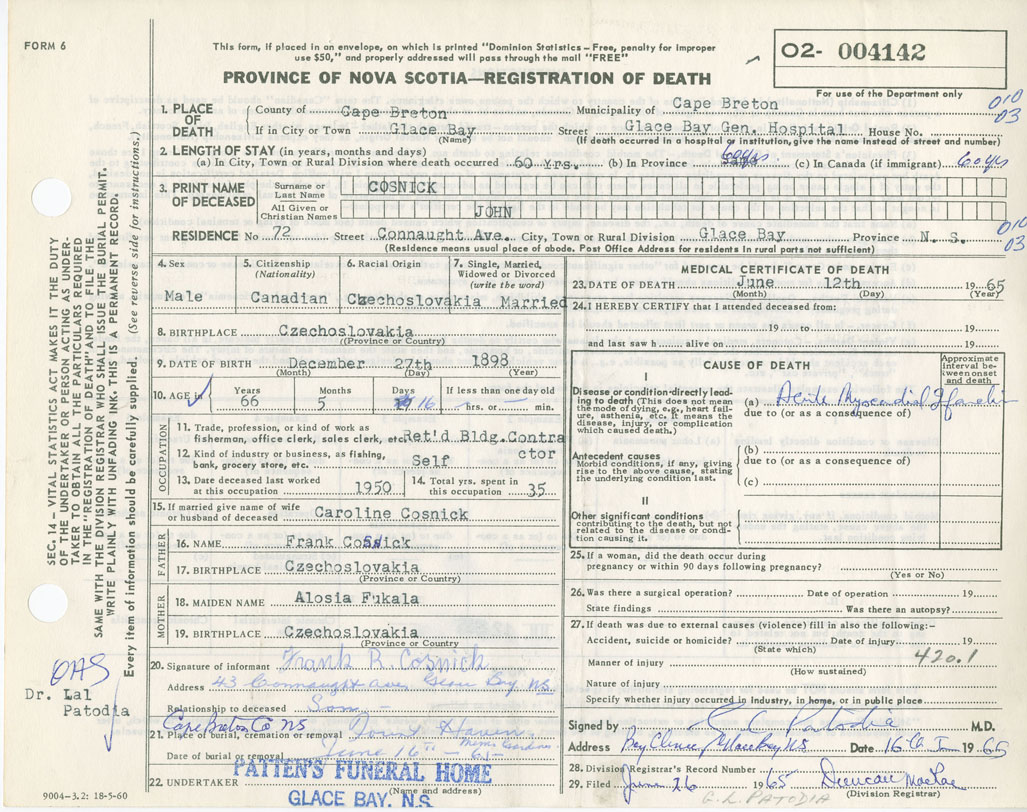 FORM 6
This form, if placed in an envelope, on which is printed "Dominion Statistics – Free, penalty for improper
use $50," and properly addressed will pass through the mail "FREE"
O2- 004142
PROVINCE OF NOVA SCOTIA—REGISTRATION OF DEATH
For use of the Department only
010
03
1. PLACE OF DEATH
County of Cape Breton Municipality of Cape Breton
If in City or Town Glace Bay Street Glace Bay Gen. Hospital House No.
(Name) (If death occurred in a hospital or institution, give the name instead of street and number)
2. LENGTH OF STAY (in years, months and days)
(a) In City, Town or Rural Division where death ocured 60 Yrs. (b) In Province 60 yrs (c) In Canada (if immigrant) 60 yrs
3. PRINT NAME OF DECEASED
Surname or Last Name COSNICK
All Given or Christian Names JOHN
RESIDENCE No 72 Street Connaught Ave. City, Town or Rural Division Glace Bay Province N. S.
010
03
(Residence means usual place of abode. Post Office Address for residents in rural parts not sufficient)
4. Sex
Male
5. Citizenship
(Nationality)
Canadian
6. Racial Origin
Czechoslovakia
7. Single, Married,
Widowed or Divorced
(write the word)
Married
8. BIRTHPLACE Czechoslovakia
(Province or Country)
9. DATE OF BIRTH December 27th 1898
(Month) (Day) (Year)
10. AGE in
Years 66
Months 5
Days 16
If less than one day old
hrs. or min.
OCCUPATION
11. Trade, profession, or kind of work as
fisherman, office clerk, sales clerk, etc. Ret'd Bldg.Contra
ctor
12. Kind of industry or business, as fishing,
bank, grocery store, etc. Self
13. Date deceased last worked
at this occupation 1950
14. Total yrs. spent in
this occupation 35
15. If married give name of wife
or husband of deceased Caroline Cosnick
FATHER
16. NAME Frank Cosnick
17. BIRTHPLACE Czechoslovakia
(Province or Country)
MOTHER
18. MAIDEN NAME Alosia Fukala
19. BIRTHPLACE Czechoslovakia
(Province or Country)
20. Signature of informant Frank R. Cosnick
Address 43 Connaught Ave Glace Bay NS
Relationship to deceased Son –
Cape Breton Co NS
21. Place of burial, cremation or removal Haven
Mem. Gardens
Date of burial or removal June 16th – 65
PATTEN'S FUNERAL HOME
22. UNDERTAKER
(Name and address)
GLACE BAY. N.S.
MEDICAL CERTIFICATE OF DEATH
23. DATE OF DEATH June 12th 1965
(Month) (Day) (Year)
24. I HEREBY CERTIFY that I attended deceased from:
19 to 19
and last saw h alive on 19
CAUSE OF DEATH
Approximate
interval be-
tween onset
and death
I
Disease or condition directly lead-
ing to death (This does not mean
the mode of dying, e.g., heart fail-
ure, asthenia, etc. It means the
disease, injury, or complication
which caused death.)
(a) Acute Myocardial Infarction
due to (or as a consequence of)
Antecedent causes
Morbid conditions, if any, giving
rise to the above cause, stating
the underlying condition last.
(b)
due to (or as a consequence of)
(c)
II
Other significant conditions
contributing to the death, but not
related to the disease or condi-
tion causing it.
25. If a woman, did the death occur during
pregnancy or within 90 days following pregnancy?
(Yes or No)
26. Was there a surgical operation? Date of operation 19
State findings Was there an autopsy?
27. If death was due to external causes (violence) fill in also the following:-
Accident, suicide or homicide? Date of injury 19
(State which)
420.1
Manner of injury
(How sustained)
Nature of injury
Specify whether injury occurred in Industry, in home, or in public place
Signed by Patodia M.D.
Address Bay Clinic, Glace Bay NS Date 16th June 1965
28. Division Registrar's Record Number
29. Filed June 26 1965 Duncan MacRae
(Division Registrar)
G. L. PATODIA
SEC. 14 – VITAL STATISTICS ACT MAKES IT THE DUTY
OF THE UNDERTAKER OR PERSON ACTING AS UNDER-
TAKER TO OBTAIN ALL THE PARTICULARS REQUIRED
IN THE "REGISTRATION OF DEATH" AND TO FILE THE
SAME WITH THE DIVISION REGISTRAR WHO SHALL ISSUE THE BURIAL PERMIT.
WRITE PLAINLY WITH UNFADING INK. THIS IS A PERMANENT RECORD.
Every item of information should be carefully supplied. (See reverse side for instructions.)
Dr. Lal
Patodia
9004–3.2: 18-5-60